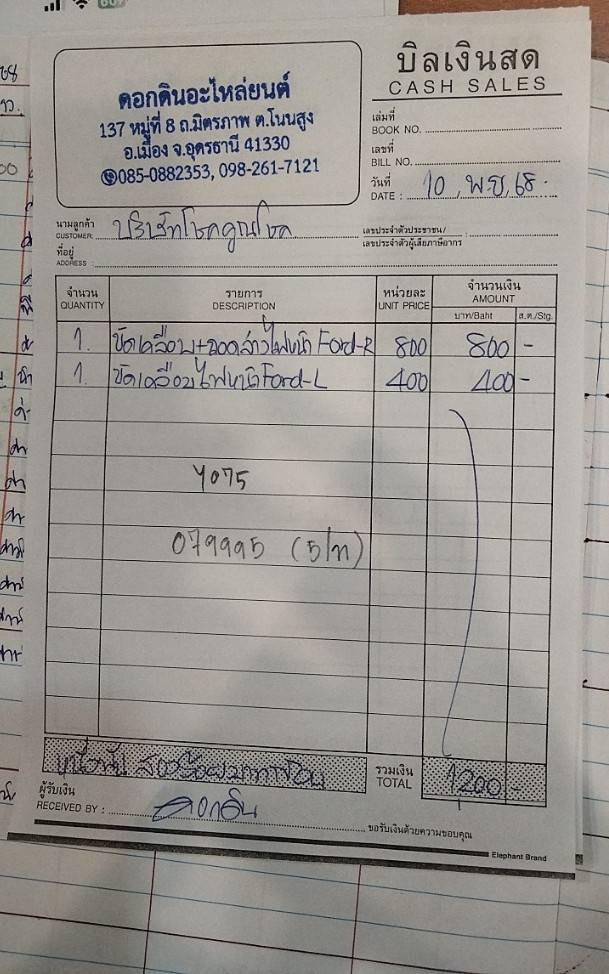 บิลเงินสด
CASH SALES
ดอกดินอะไหล่ยนต์
137 หมู่ที่ 8 ถ.มิตรภาพ ต.โนนสูง
อ.เมือง จ.อุดรธานี 41330
085-0882353, 098-261-7121
เล่มที่
BOOK NO.
เลขที่
BILL NO.
วันที่
DATE : 10 พ.ย. 68
นามลูกค้า
CUSTOMER: บริษัทโชคคูณโชค
เลขประจำตัวประชาชน/
เลขประจำตัวผู้เสียภาษีอากร
ที่อยู่
ADDRESS :
จำนวน รายการ หน่วยละ จำนวนเงิน
QUANTITY DESCRIPTION UNIT PRICE AMOUNT
บาท/Baht ส.ต./Stg.
1. ขัดเคลือบ+ถอดล้างไฟหน้า Ford-R 800 800 -
1. ขัดเคลือบไฟหน้า Ford-L 400 400 -
4075
079995 (5/ท)
หนึ่งพันสองร้อยบาทถ้วน
รวมเงิน
TOTAL 1200 -
ผู้รับเงิน
RECEIVED BY : ดอกดิน
ขอรับเงินด้วยความขอบคุณ
Elephant Brand